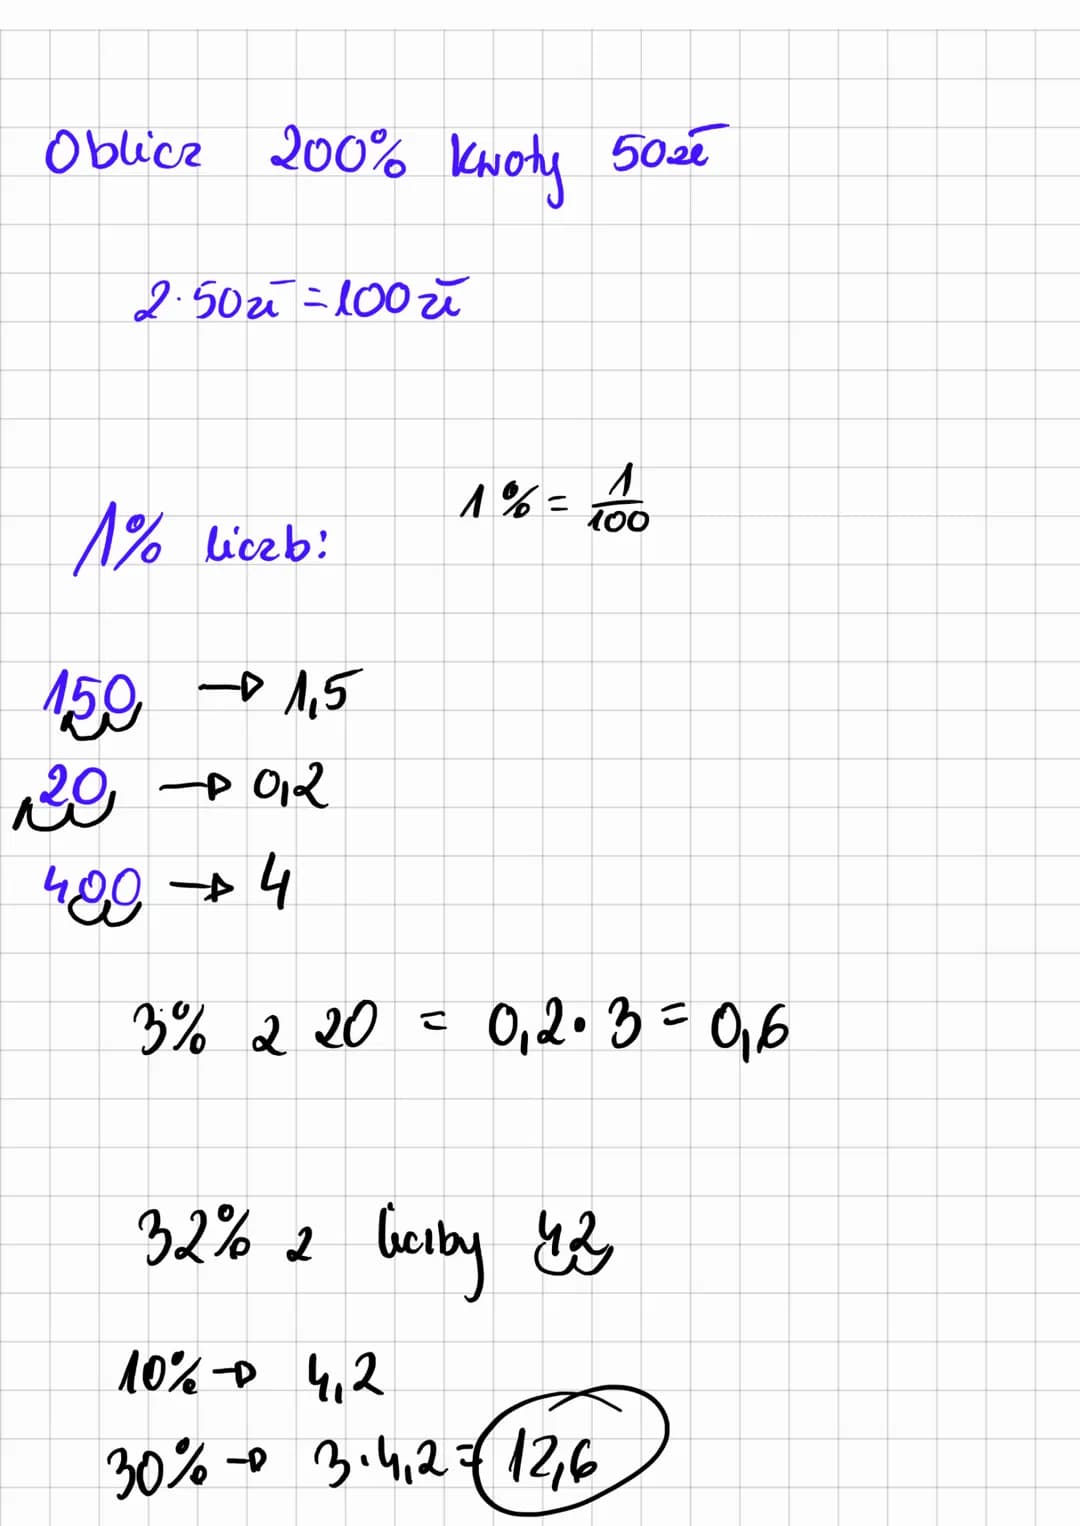 Oblicz 200% kwoty 50zł
2·50zł=100zł
1%=1/100
1% liczb:
150, → 1,5
20, → 0,2
400 → 4
3% z 20 = 0,2·3=0,6
32% z liczby 42,
10%→ 4,2
30%→ 3·4,2=12,6